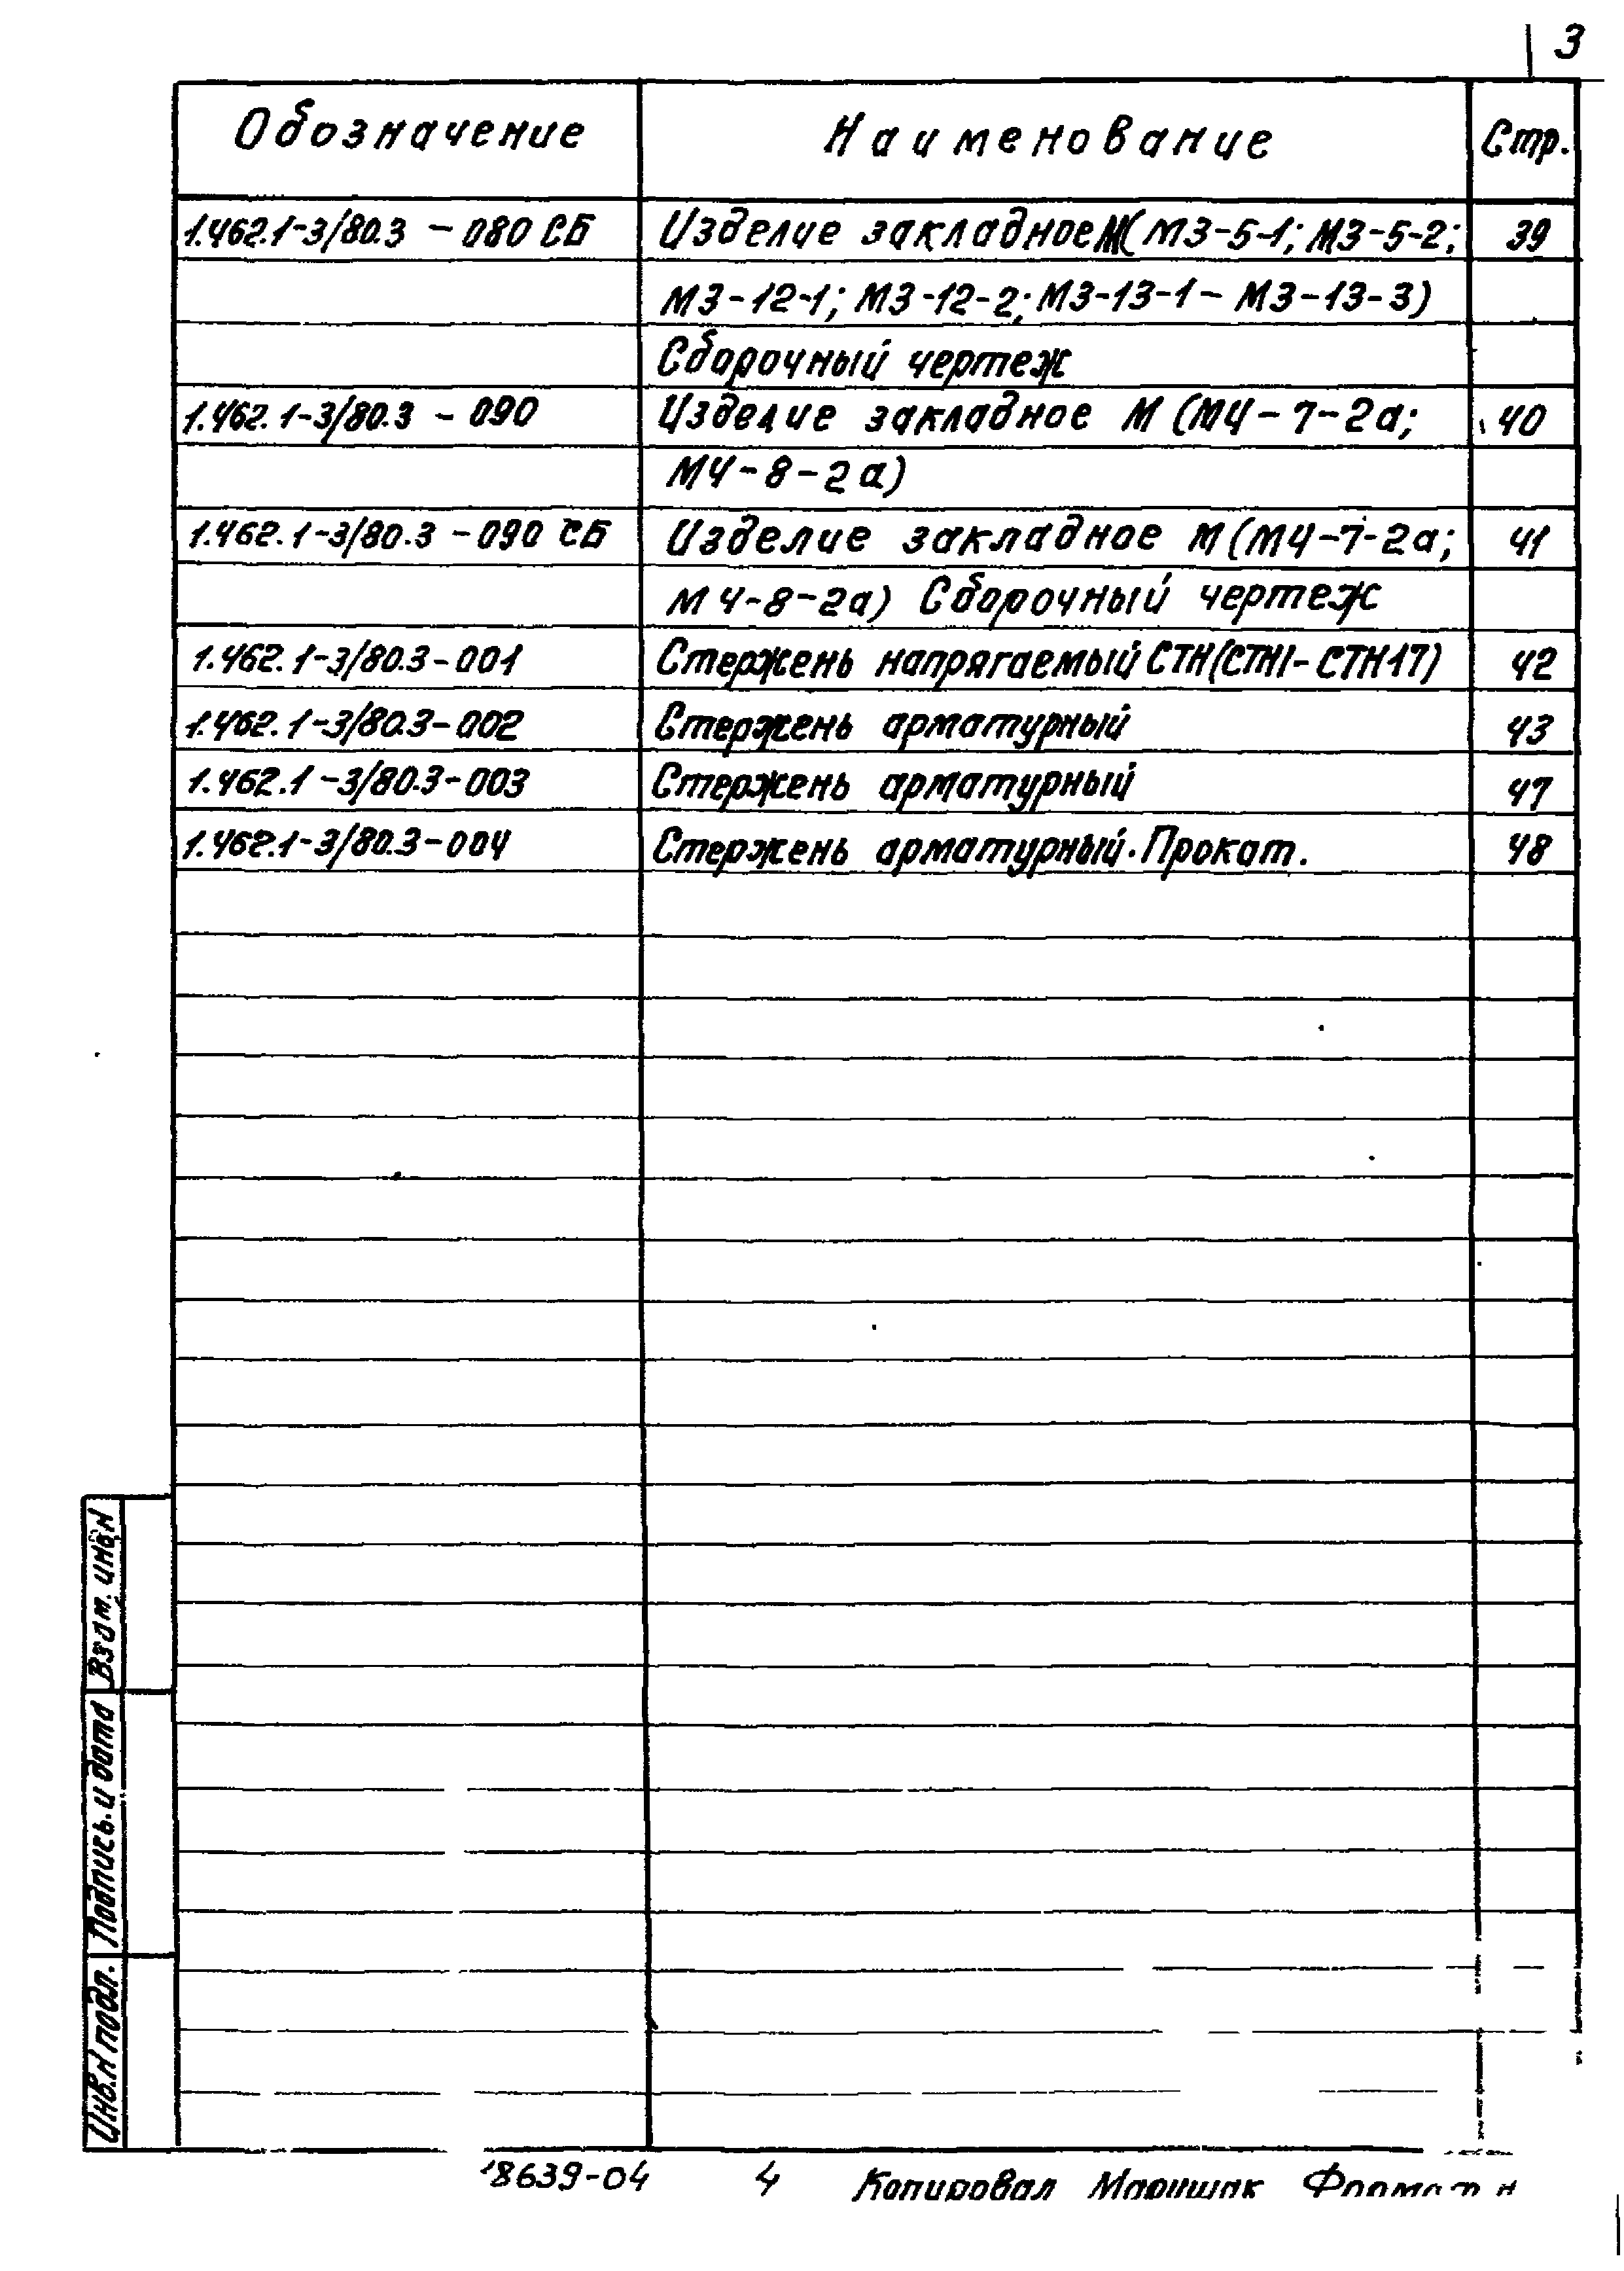 3
Обозначение Наименование Стр.
1.462.1-3/80.3 - 080 СБ Изделие закладное М(М3-5-1; М3-5-2; 39
М3-12-1; М3-12-2; М3-13-1 - М3-13-3)
Сборочный чертеж
1.462.1-3/80.3 - 090 Изделие закладное М (М4-7-2а; 40
М4-8-2а)
1.462.1-3/80.3 - 090 СБ Изделие закладное М(М4-7-2а; 41
М4-8-2а) Сборочный чертеж
1.462.1-3/80.3-001 Стержень напрягаемый СТН(СТН1-СТН17) 42
1.462.1-3/80.3-002 Стержень арматурный 43
1.462.1-3/80.3-003 Стержень арматурный 47
1.462.1-3/80.3-004 Стержень арматурный. Прокат. 48
Взам. инв.N
Подпись и дата
Инв.N подл.
18639-04 4 Копировал Маришак Формат